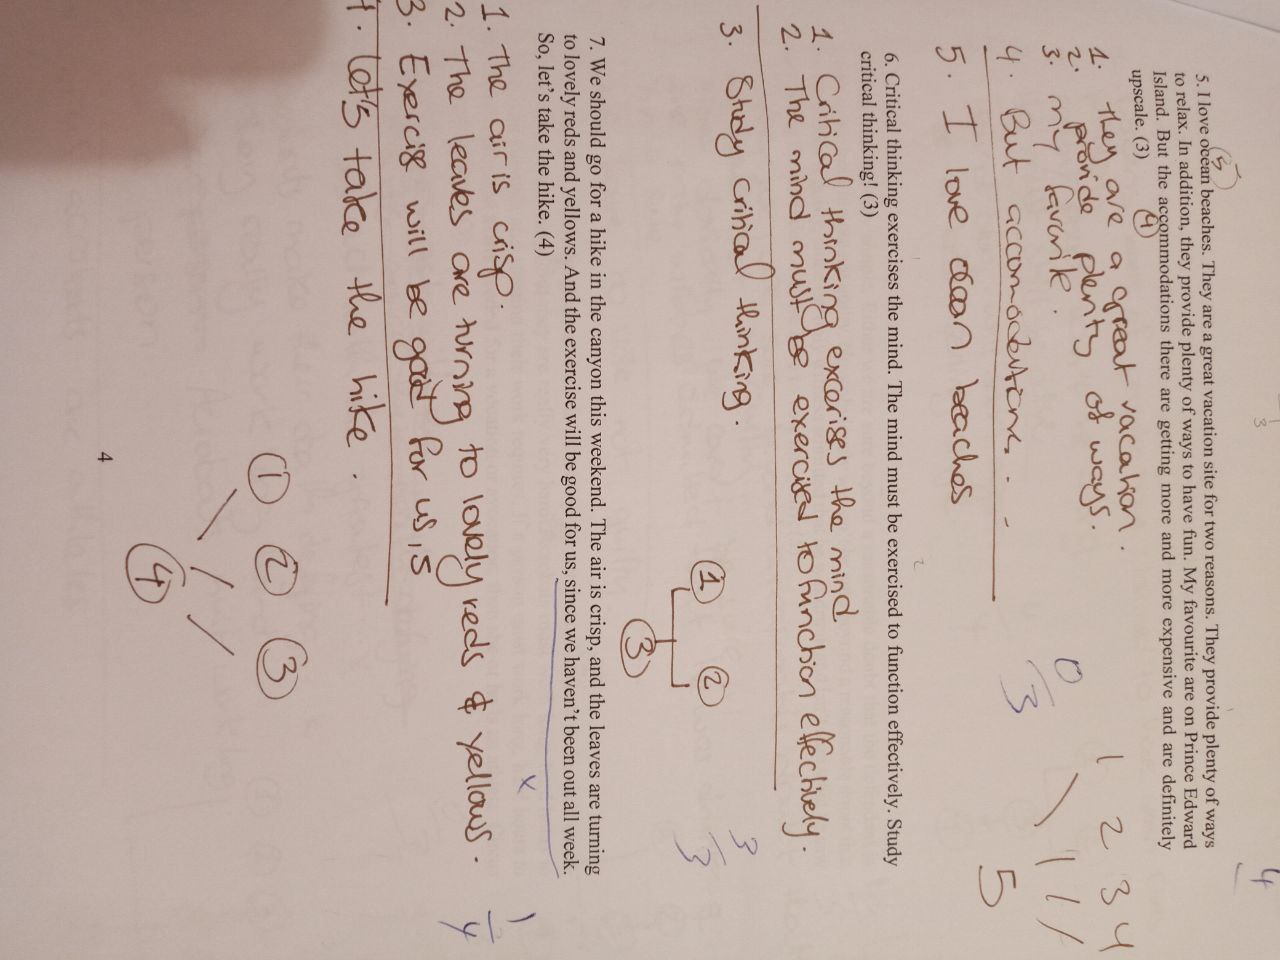 5. I love ocean beaches. They are a great vacation site for two reasons. They provide plenty of ways
to relax. In addition, they provide plenty of ways to have fun. My favourite are on Prince Edward
Island. But the accommodations there are getting more and more expensive and are definitely
upscale. (3)
5
4
1. They are a great vacation.
2. provide plenty of ways.
3. my favorite.
4. But accomodations . . -
5. I love ocean beaches
1 2 3 4
5
0
3
6. Critical thinking exercises the mind. The mind must be exercised to function effectively. Study
critical thinking! (3)
1. Critical thinking excerises the mind
2. The mind must be exercised to function effectively.
3. Study critical thinking.
1 2
3
3
3
7. We should go for a hike in the canyon this weekend. The air is crisp, and the leaves are turning
to lovely reds and yellows. And the exercise will be good for us, since we haven't been out all week.
So, let's take the hike. (4)
x
1. The air is crisp.
2. The leaves are turning to lovely reds & yellows.
3. Exercise will be good for us, s
4. let's take the hike.
1
4
1 2 3
4
4